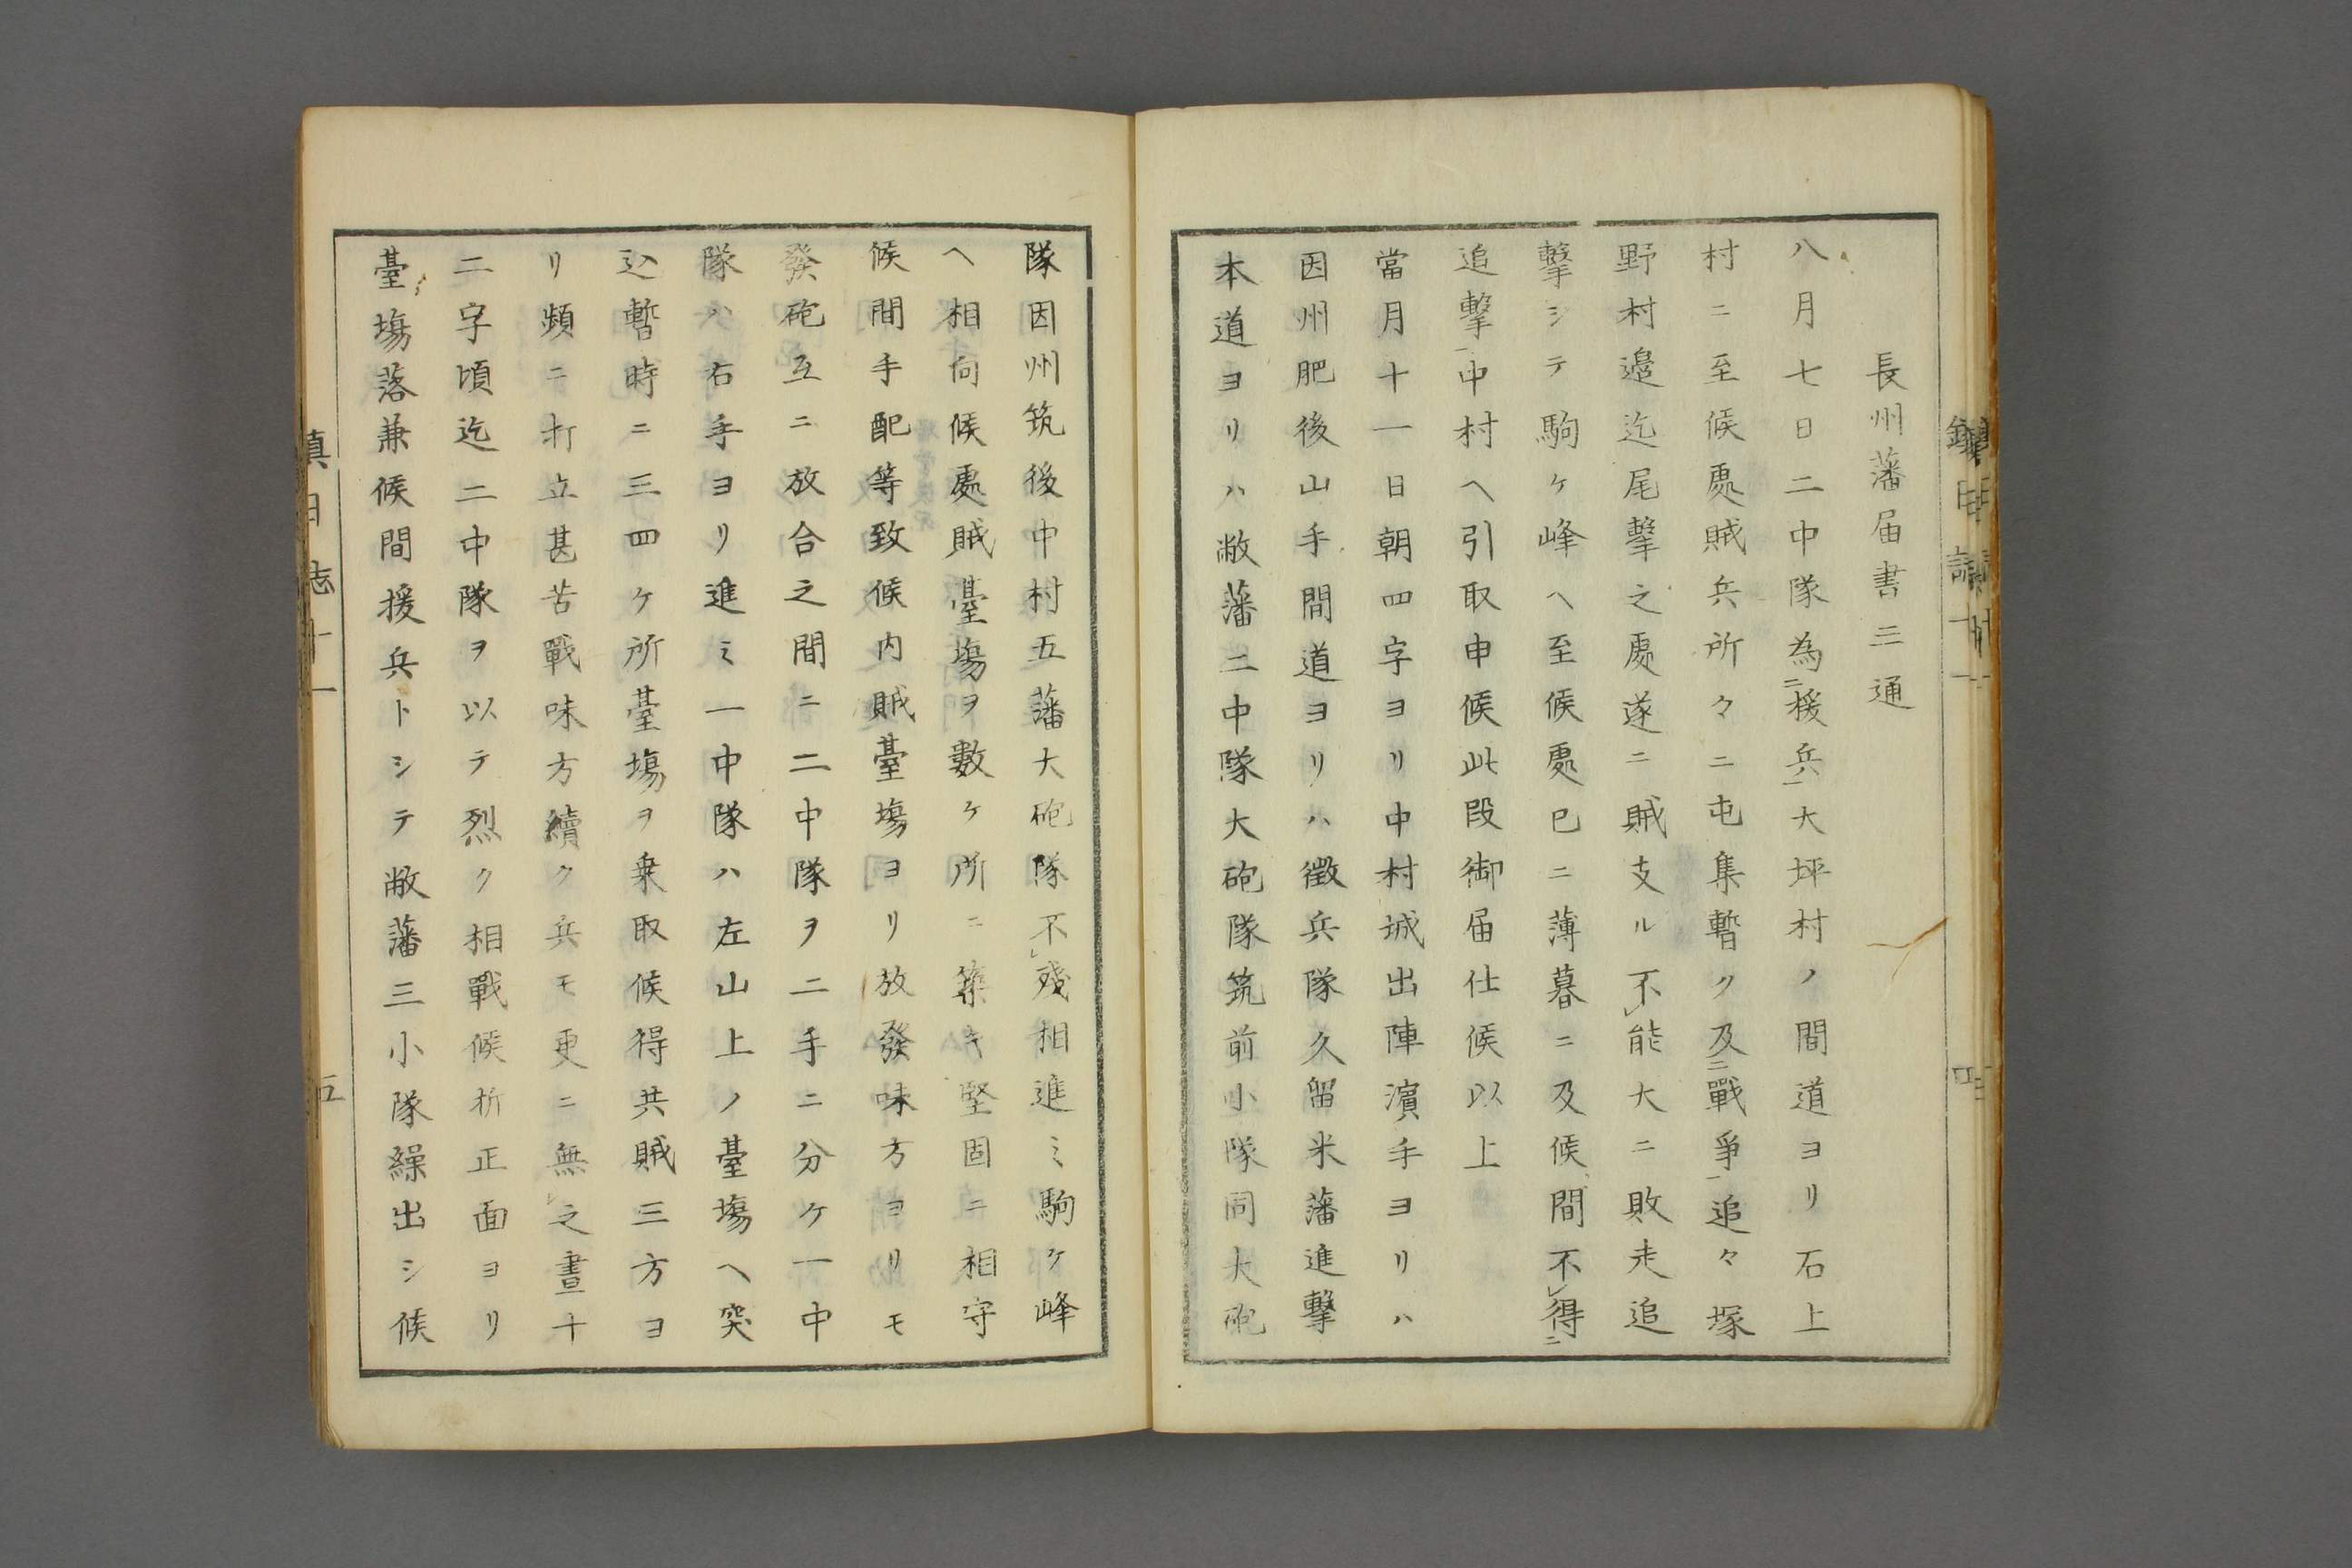 長州藩届書三通
八月七日二中隊為二援兵一大坪村ノ間道ヨリ石上
村ニ至候處賊兵所々ニ屯集暫ク及二戰爭一追々塚
野村邉迄尾撃之處遂ニ賊支ル不レ能大ニ敗走追
撃シテ駒ヶ峰ヘ至候處巳ニ薄暮ニ及候間不レ得二
追撃一中村ヘ引取申候此段御届仕候以上
當月十一日朝四字ヨリ中村城出陣濵手ヨリハ
因州肥後山手間道ヨリハ徴兵隊久留米藩進撃
本道ヨリハ敝藩二中隊大砲隊筑前小隊同大砲
隊因州筑後中村五藩大砲隊不レ殘相進ミ駒ヶ峰
ヘ相向候處賊臺塲ヲ數ヶ所ニ築キ堅固ニ相守
候間手配等致候内賊臺塲ヨリ放發味方ヨリモ
發砲互ニ放合之間ニ二中隊ヲ二手ニ分ケ一中
隊ハ右手ヨリ進ミ一中隊ハ左山上ノ臺塲ヘ突
込暫時ニ三四ヶ所臺塲ヲ乗取候得共賊三方ヨ
リ頻ニ打立甚苦戰味方續ク兵モ更ニ無レ之晝十
二字頃迄二中隊ヲ以テ烈ク相戰候折正面ヨリ
臺塲落兼候間援兵トシテ敝藩三小隊繰出シ候
鎮日誌十一
四
鎮日志十一
五